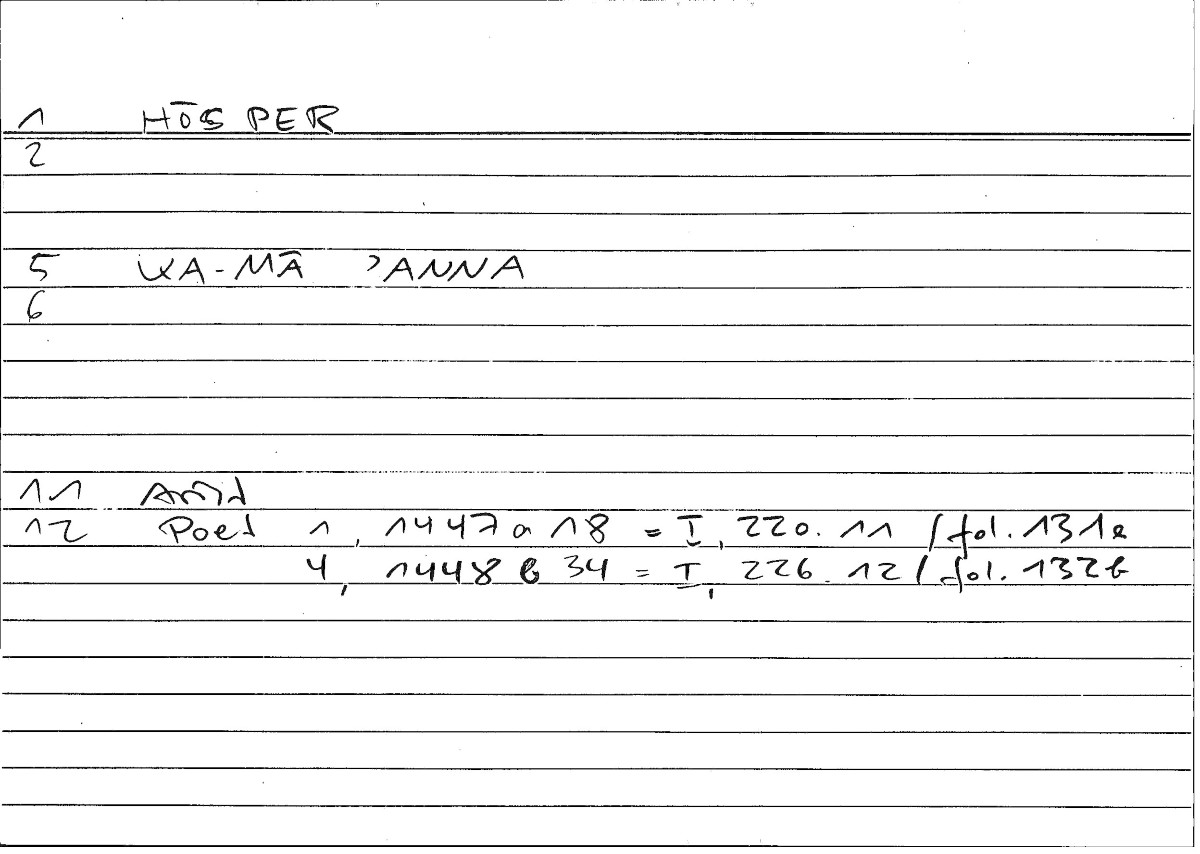 1 HŌS PER
2
5 KA-MĀ ʾANNA
6
11 Arist
12 Poet 1, 1447 a 18 = I, 220. 11 / fol. 131a
4, 1448 b 34 = I, 226. 12 / fol. 132b